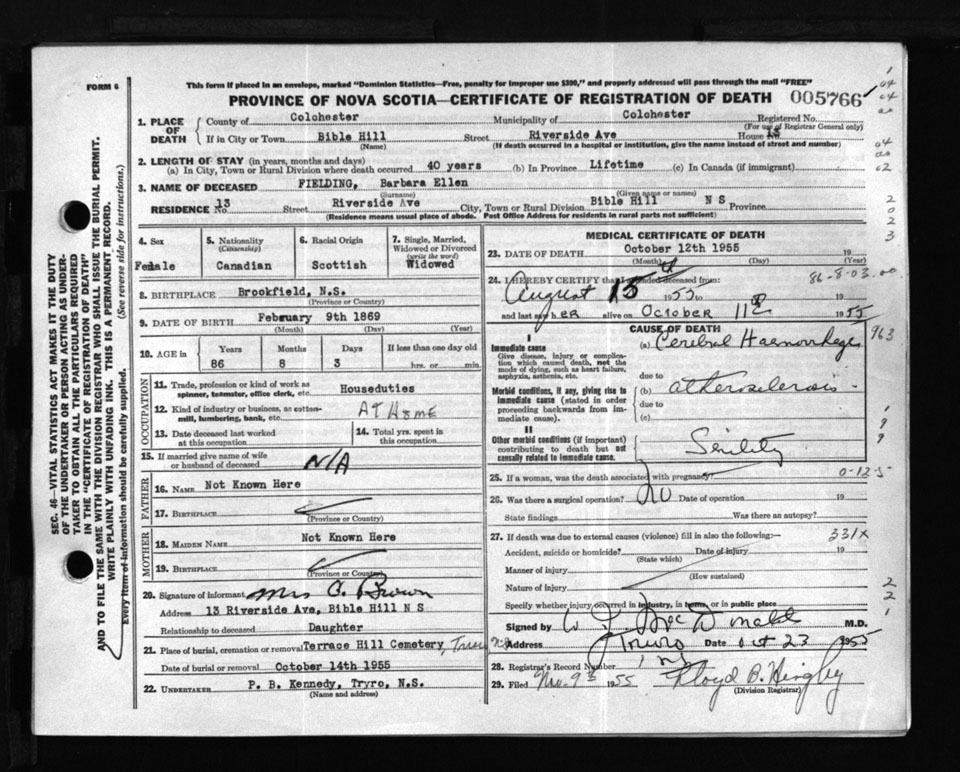 FORM 6
This form if placed in an envelope, marked "Dominion Statistics—Free, penalty for improper use $300," and properly addressed will pass through the mail "FREE"
PROVINCE OF NOVA SCOTIA—CERTIFICATE OF REGISTRATION OF DEATH 005766
1. PLACE OF DEATH County of Colchester Municipality of Colchester Registered No.
(For use of Registrar General only)
If in City or Town Bible Hill Street Riverside Ave House 13
(Name) (If death occurred in a hospital or institution, give the name instead of street and number)
2. LENGTH OF STAY (in years, months and days)
(a) In City, Town or Rural Division where death occurred 40 years (b) In Province Lifetime (c) In Canada (if immigrant)
3. NAME OF DECEASED FIELDING, Barbara Ellen
(Surname) (Given name or names)
RESIDENCE No. 13 Street Riverside Ave City, Town or Rural Division Bible Hill N S Province
(Residence means usual place of abode. Post Office Address for residents in rural parts not sufficient)
4. Sex Female
5. Nationality (Citizenship) Canadian
6. Racial Origin Scottish
7. Single, Married, Widowed or Divorced (write the word) Widowed
8. BIRTHPLACE Brookfield, N.S.
(Province or Country)
9. DATE OF BIRTH February 9th 1869
(Month) (Day) (Year)
10. AGE in Years Months Days If less than one day old
86 8 3 hrs. or min.
OCCUPATION
11. Trade, profession or kind of work as spinner, teamster, office clerk, etc. Houseduties
12. Kind of industry or business, as cotton-mill, lumbering, bank, etc. AT HOME
13. Date deceased last worked at this occupation
14. Total yrs. spent in this occupation
15. If married give name of wife or husband of deceased N/A
FATHER
16. NAME Not Known Here
17. BIRTHPLACE
(Province or Country)
MOTHER
18. MAIDEN NAME Not Known Here
19. BIRTHPLACE
(Province or Country)
20. Signature of informant Mrs C. Brown
Address 13 Riverside Ave, Bible Hill N S
Relationship to deceased Daughter
21. Place of burial, cremation or removal Terrace Hill Cemetery, Truro
Date of burial or removal October 14th 1955
22. UNDERTAKER P. B. Kennedy, Tryro, N.S.
(Name and address)
MEDICAL CERTIFICATE OF DEATH
23. DATE OF DEATH October 12th 1955 19
(Month) (Day) (Year)
24. I HEREBY CERTIFY that I attended deceased from:
86-8-03
August 15 1955 to 19
and last saw h ER alive on October 11 1955
CAUSE OF DEATH
I
Immediate cause
Give disease, injury or complication which caused death, not the mode of dying, such as heart failure, asphyxia, asthenia, etc.
(a) Cerebral Haemorrhage
963
due to
Morbid conditions, if any, giving rise to immediate cause (stated in order proceeding backwards from immediate cause).
(b) atherosclerosis
due to
(c)
II
Other morbid conditions (if important) contributing to death but not causally related to immediate cause.
Senility
25. If a woman, was the death associated with pregnancy?
0-12-5
26. Was there a surgical operation? No Date of operation 19
State findings Was there an autopsy?
27. If death was due to external causes (violence) fill in also the following:—
331X
Accident, suicide or homicide? Date of injury 19
(State which)
Manner of injury
(How sustained)
Nature of injury
Specify whether injury occurred in industry, in home, or in public place
Signed by W. F. MacDonald M.D.
Address Truro Date Oct 23 1955
28. Registrar's Record Number
29. Filed Nov. 9 1955 Floyd B. Hingley
(Division Registrar)
SEC. 46—VITAL STATISTICS ACT MAKES IT THE DUTY
OF THE UNDERTAKER OR PERSON ACTING AS UNDER-
TAKER TO OBTAIN ALL THE PARTICULARS REQUIRED
IN THE "CERTIFICATE OF REGISTRATION OF DEATH"
AND TO FILE THE SAME WITH THE DIVISION REGISTRAR WHO SHALL ISSUE THE BURIAL PERMIT.
WRITE PLAINLY WITH UNFADING INK. THIS IS A PERMANENT RECORD.
Every item of information should be carefully supplied. (See reverse side for instructions.)